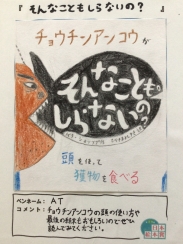 『そんなこともしらないの？』
チョウチンアンコウが
そんなことも。
しらないの？
頭を使って
獲物を食べる
ペンネーム：AT
コメント：チョウチンアンコウの頭の使い方や
最後の結末もおもしろいのでぜひ
読んでみてください。